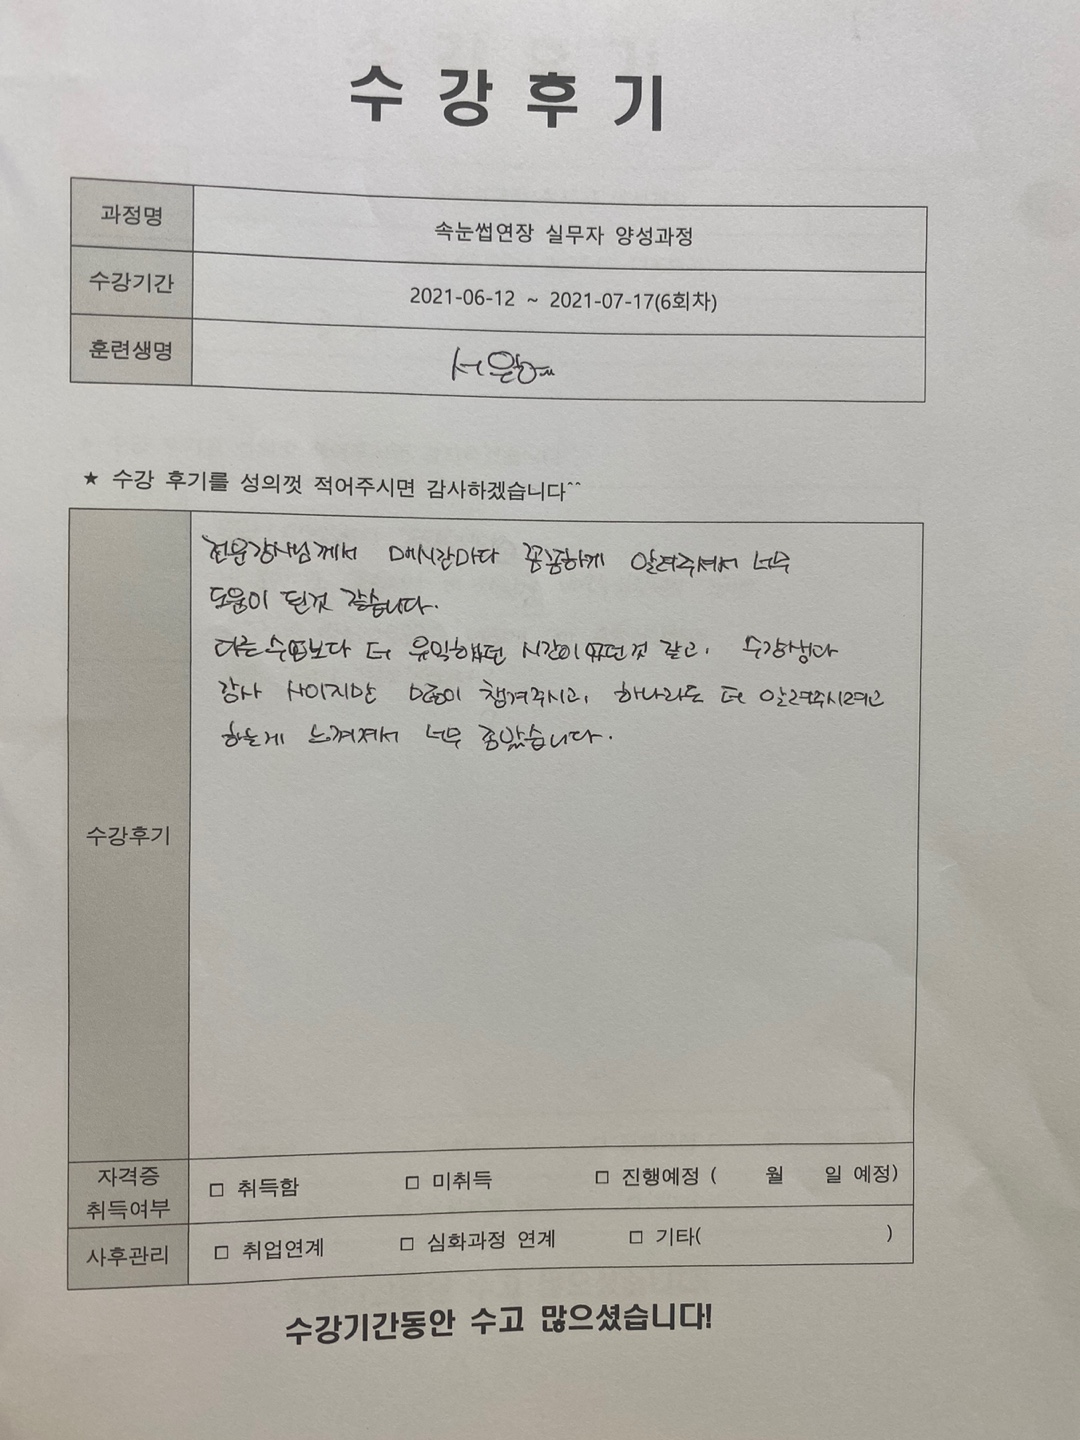 수강후기
과정명 속눈썹연장 실무자 양성과정
수강기간 2021-06-12 ~ 2021-07-17(6회차)
훈련생명 서
★ 수강 후기를 성의껏 적어주시면 감사하겠습니다^^
전문강사님께서 매시간마다 꼼꼼하게 알려주셔서 너무
도움이 된것 같습니다.
다른 수업보다 더 유익했던 시간이었던것 같고, 수강생과
강사 사이지만 많이 챙겨주시고, 하나라도 더 알려주시려고
하는게 느껴져서 너무 좋았습니다.
수강후기
자격증 취득여부 □ 취득함 □ 미취득 □ 진행예정 ( 월 일 예정)
사후관리 □ 취업연계 □ 심화과정 연계 □ 기타( )
수강기간동안 수고 많으셨습니다!